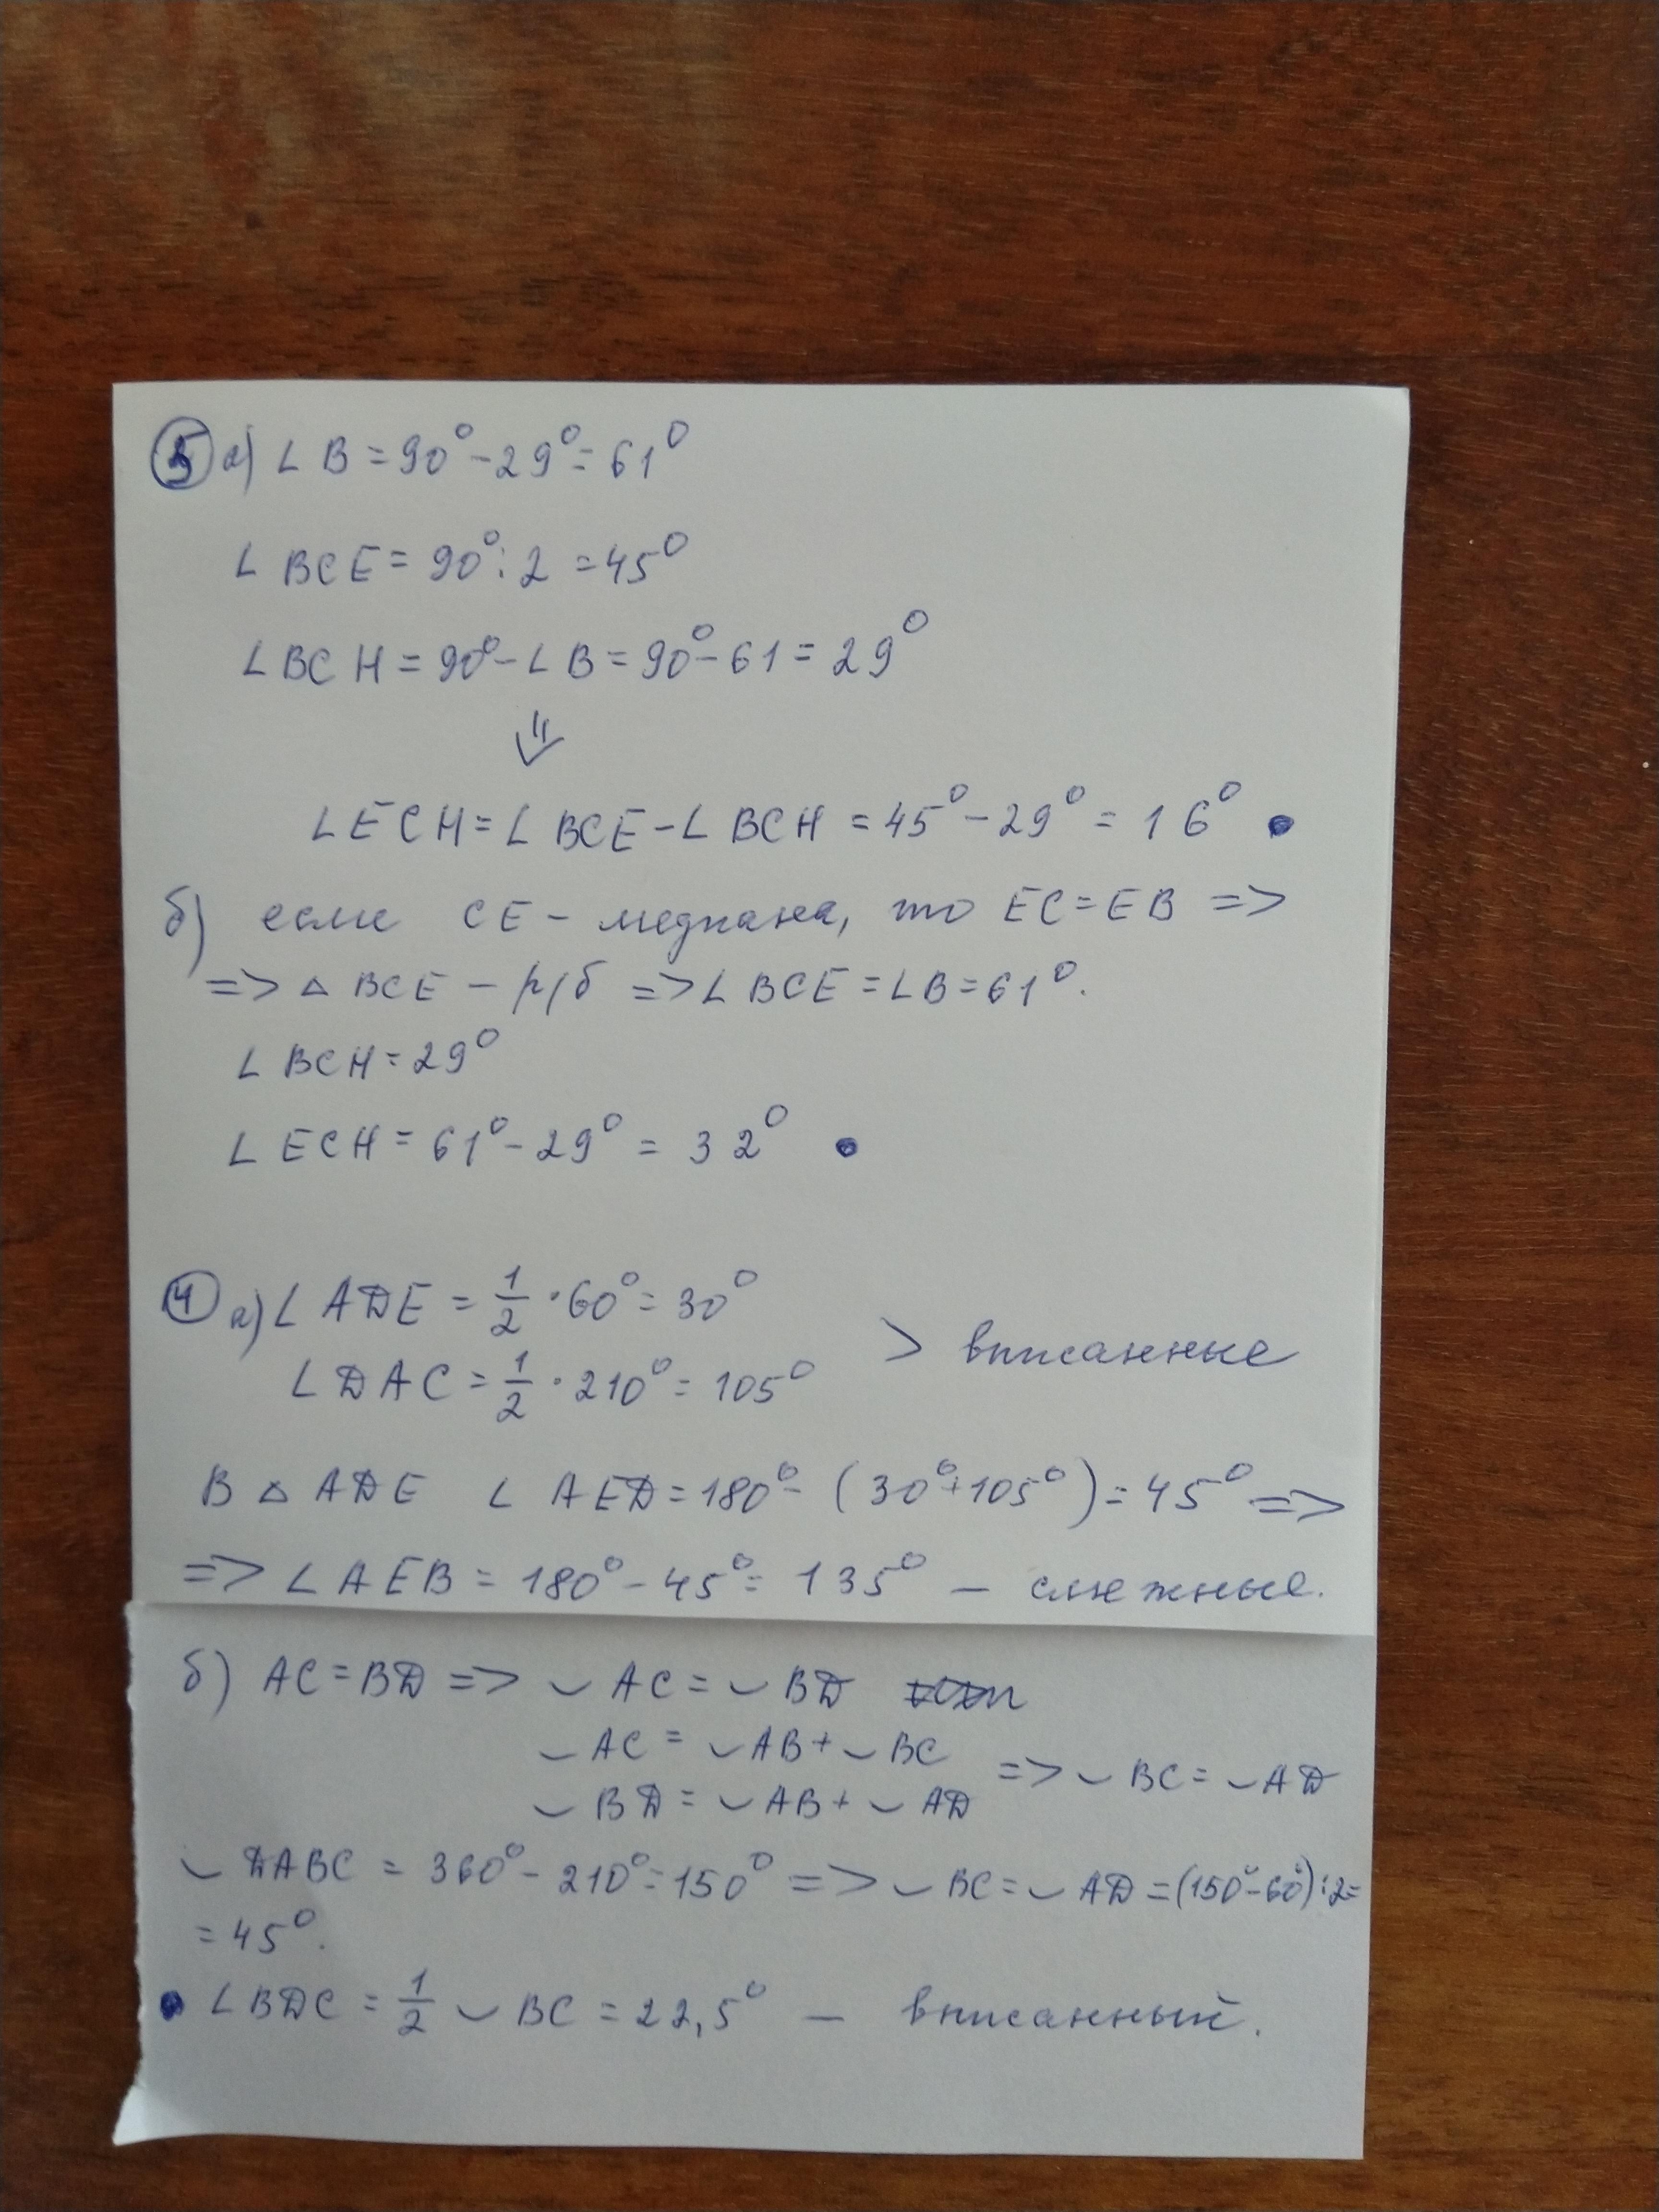 5 а) ∠ B = 90° - 29° = 61°
∠ BCE = 90° : 2 = 45°
∠ BCH = 90° - ∠ B = 90° - 61 = 29°
⇓
∠ ECH = ∠ BCE - ∠ BCH = 45° - 29° = 16°
б) если CE - медиана, то EC = EB =>
=> △ BCE - р/б => ∠ BCE = ∠B = 61°.
∠ BCH = 29°
∠ ECH = 61° - 29° = 32°
4 а) ∠ ADE = 1/2 · 60° = 30°
> вписанные
∠ DAC = 1/2 · 210° = 105°
В △ ADE ∠ AED = 180° - (30° + 105°) = 45° =>
=> ∠ AEB = 180° - 45° = 135° - смежные.
б) AC = BD => ◡ AC = ◡ BD
◡ AC = ◡ AB + ◡ BC
=> ◡ BC = ◡ AD
◡ BD = ◡ AB + ◡ AD
◡ DABC = 360° - 210° = 150° => ◡ BC = ◡ AD = (150° - 60°) : 2 =
= 45°.
∠ BDC = 1/2 ◡ BC = 22,5° - вписанный.